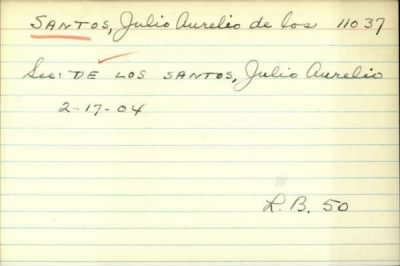 SANTOS, Julio Aurelio de los 11037
See: DE LOS SANTOS, Julio Aurelio
2-17-04
L.B. 50